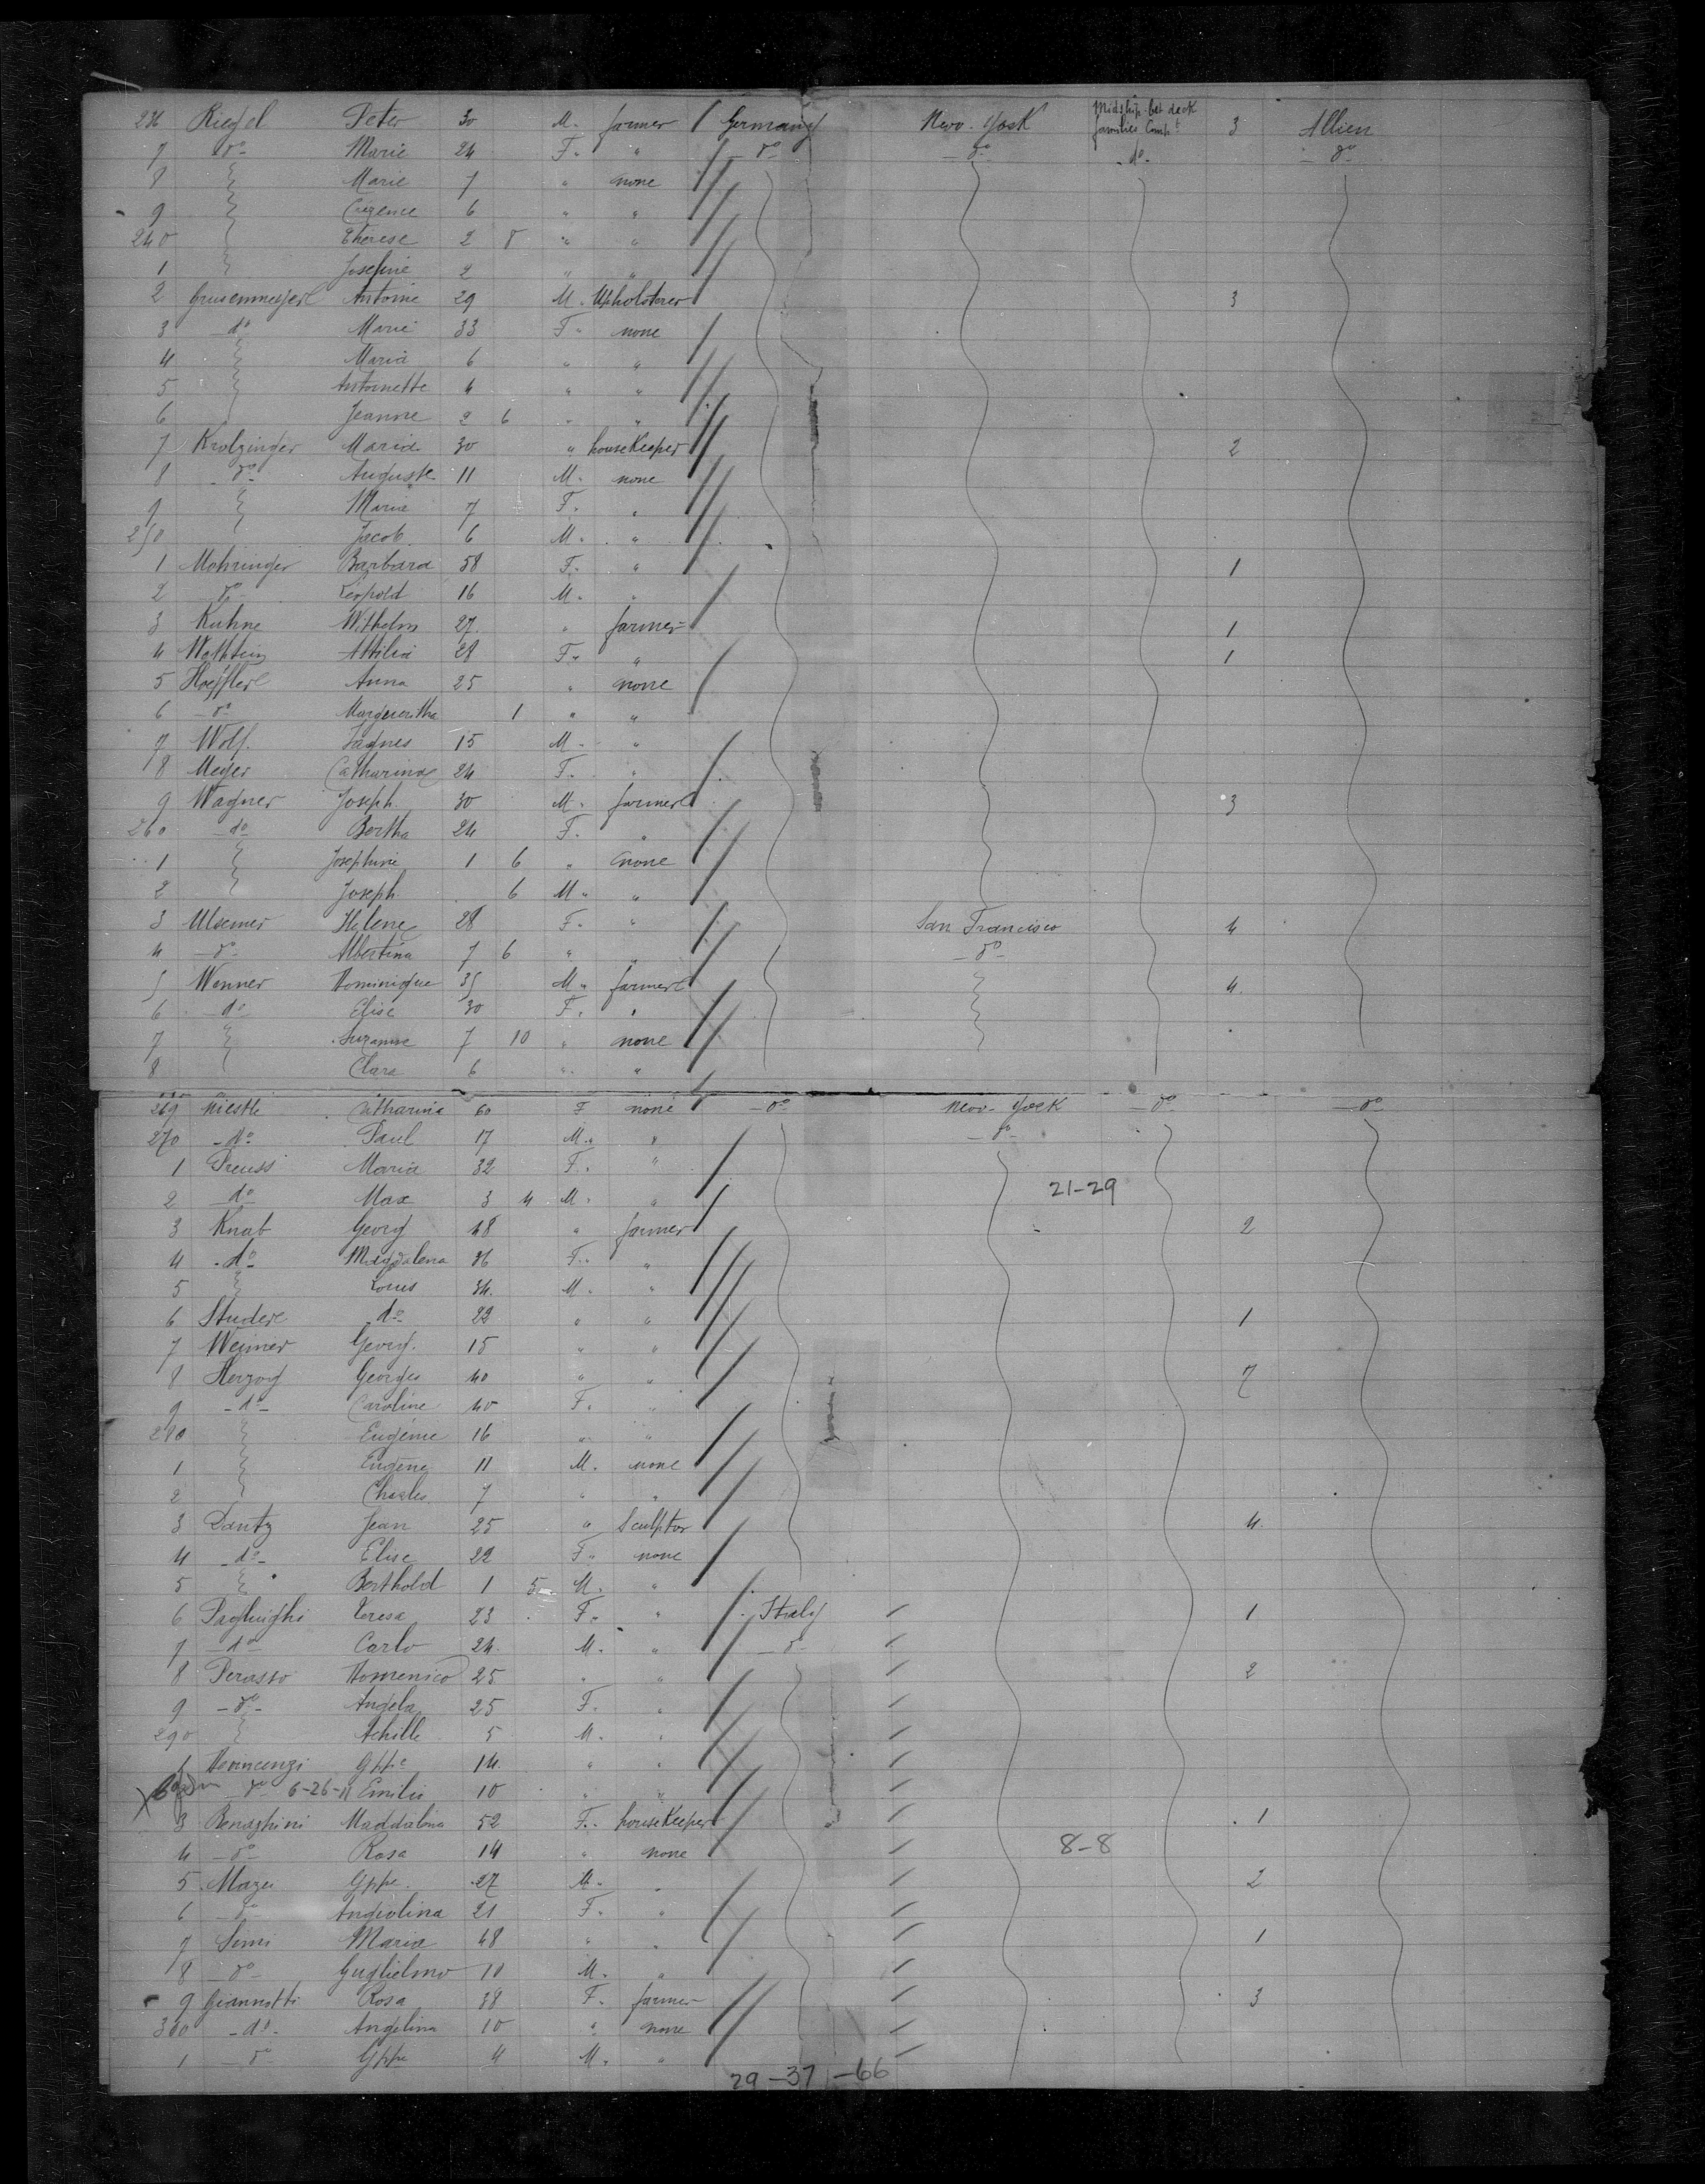 236 Riegel Peter 30 M. farmer Germany New-York Midship bet deck families Compt 3 Allien
7 -do- Marie 24 F. " -do- -do- -do- -do-
8 Marie 7 " none
9 6 " "
240 Therese 2 8 " "
1 Josefine 2 " "
2 Antoine 29 M. Upholsterer 3
3 -do- Marie 33 F. none
4 Maria 6 " "
5 Antoinette 4 " "
6 Jeanne 2 6 " "
7 Krolzinger Maria 30 " houseKeeper 2
8 -do- Auguste 11 M. none
9 Maria 7 F. "
250 Jacob 6 M. "
1 Mohringer Barbara 58 F. " 1
2 -do- Léopold 16 M. "
3 Kuhne Wilhelm 27 " farmer 1
4 28 F. " 1
5 Anna 25 " none
6 -do- Margueritha 1 " "
7 Wolf. 15 M. "
8 Meyer Catharina 24 F. "
9 Wagner Joseph 30 M. farmer 3
260 -do- Bertha 24 F. "
1 Josephine 1 6 " none
2 Joseph 6 M. "
3 Ulsemer Helene 28 F. " San Francisco 4
4 -do- Albertina 7 6 " " -do-
5 Wenner Dominique 35 M. farmer 4.
6 -do- Elise 30 F. "
7 Suzanne 7 10 " none
8 Clara 6 " "
269 Niestle Catharina 60 F none -do- New-York -do- -do-
270 -do- Paul 17 M. " -do-
1 Preuss Maria 32 F. "
21-29
2 -do- Max 3 4 M. "
3 Knab Georg 48 " farmer 2
4 -do- Magdalena 36 F. "
5 Louis 34. M. "
6 Studer do 22 " " 1
7 Weimer Georg. 15 " "
8 Herzog Georges 40 " " 7
9 -do- Caroline 40 F. "
280 Eugénie 16 " "
1 Eugene 11 M. none
2 Charles 7 " "
3 Dantz Jean 25 " Sculptor 4.
4 -do- Elise 22 F. none
5 Berthold 1 5 M. "
6 Teresa 23 F. " Italy 1
7 -do- Carlo 24 M. " -do-
8 Perasso Domenico 25 " " 2
9 -do- Angela 25 F. "
290 Achille 5 M. "
1 Gppe 14 " "
do 6-26-11 Emilio 10 " "
3 Maddalena 52 F. houseKeeper 1
4 -do- Rosa 14 " none 8-8
5 Mazei Gppe. 27 M. " 2
6 -do- Angiolina 21 F. "
7 Simi Maria 48 " " 1
8 -do- Guglielmo 10 M. "
9 Giannotti Rosa 38 F. farmer 3
300 -do- Angelina 10 " none
1 -do- Gppe 4 M. "
29-37-66